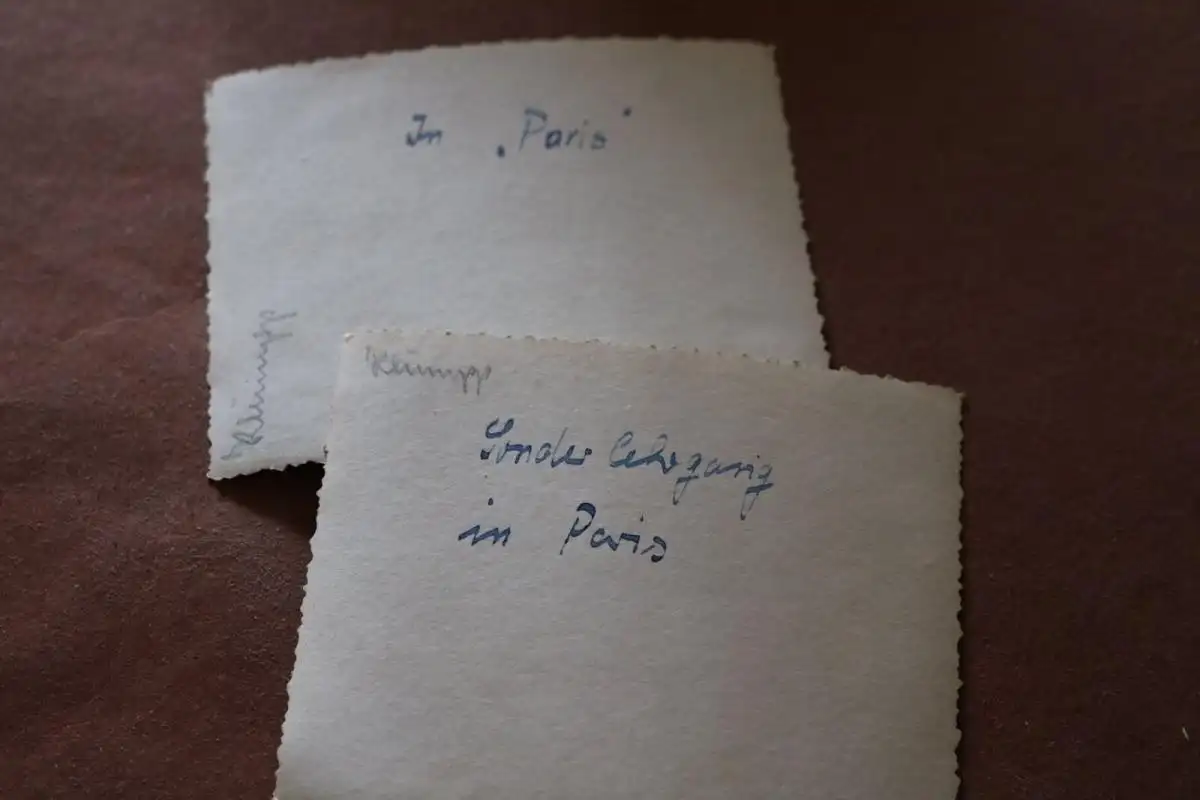 In „Paris“
Klumpp
Klumpp
Sonderlehrgang
in Paris